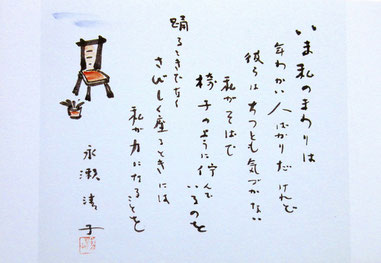 いま私のまわりは
年わかい人ばかりだけれど
彼らはちっとも気づかない
私がそばで
椅子のように佇んで
いるのを
踊るときでなく
さびしく座るときには
私が力になることを
永瀬清子